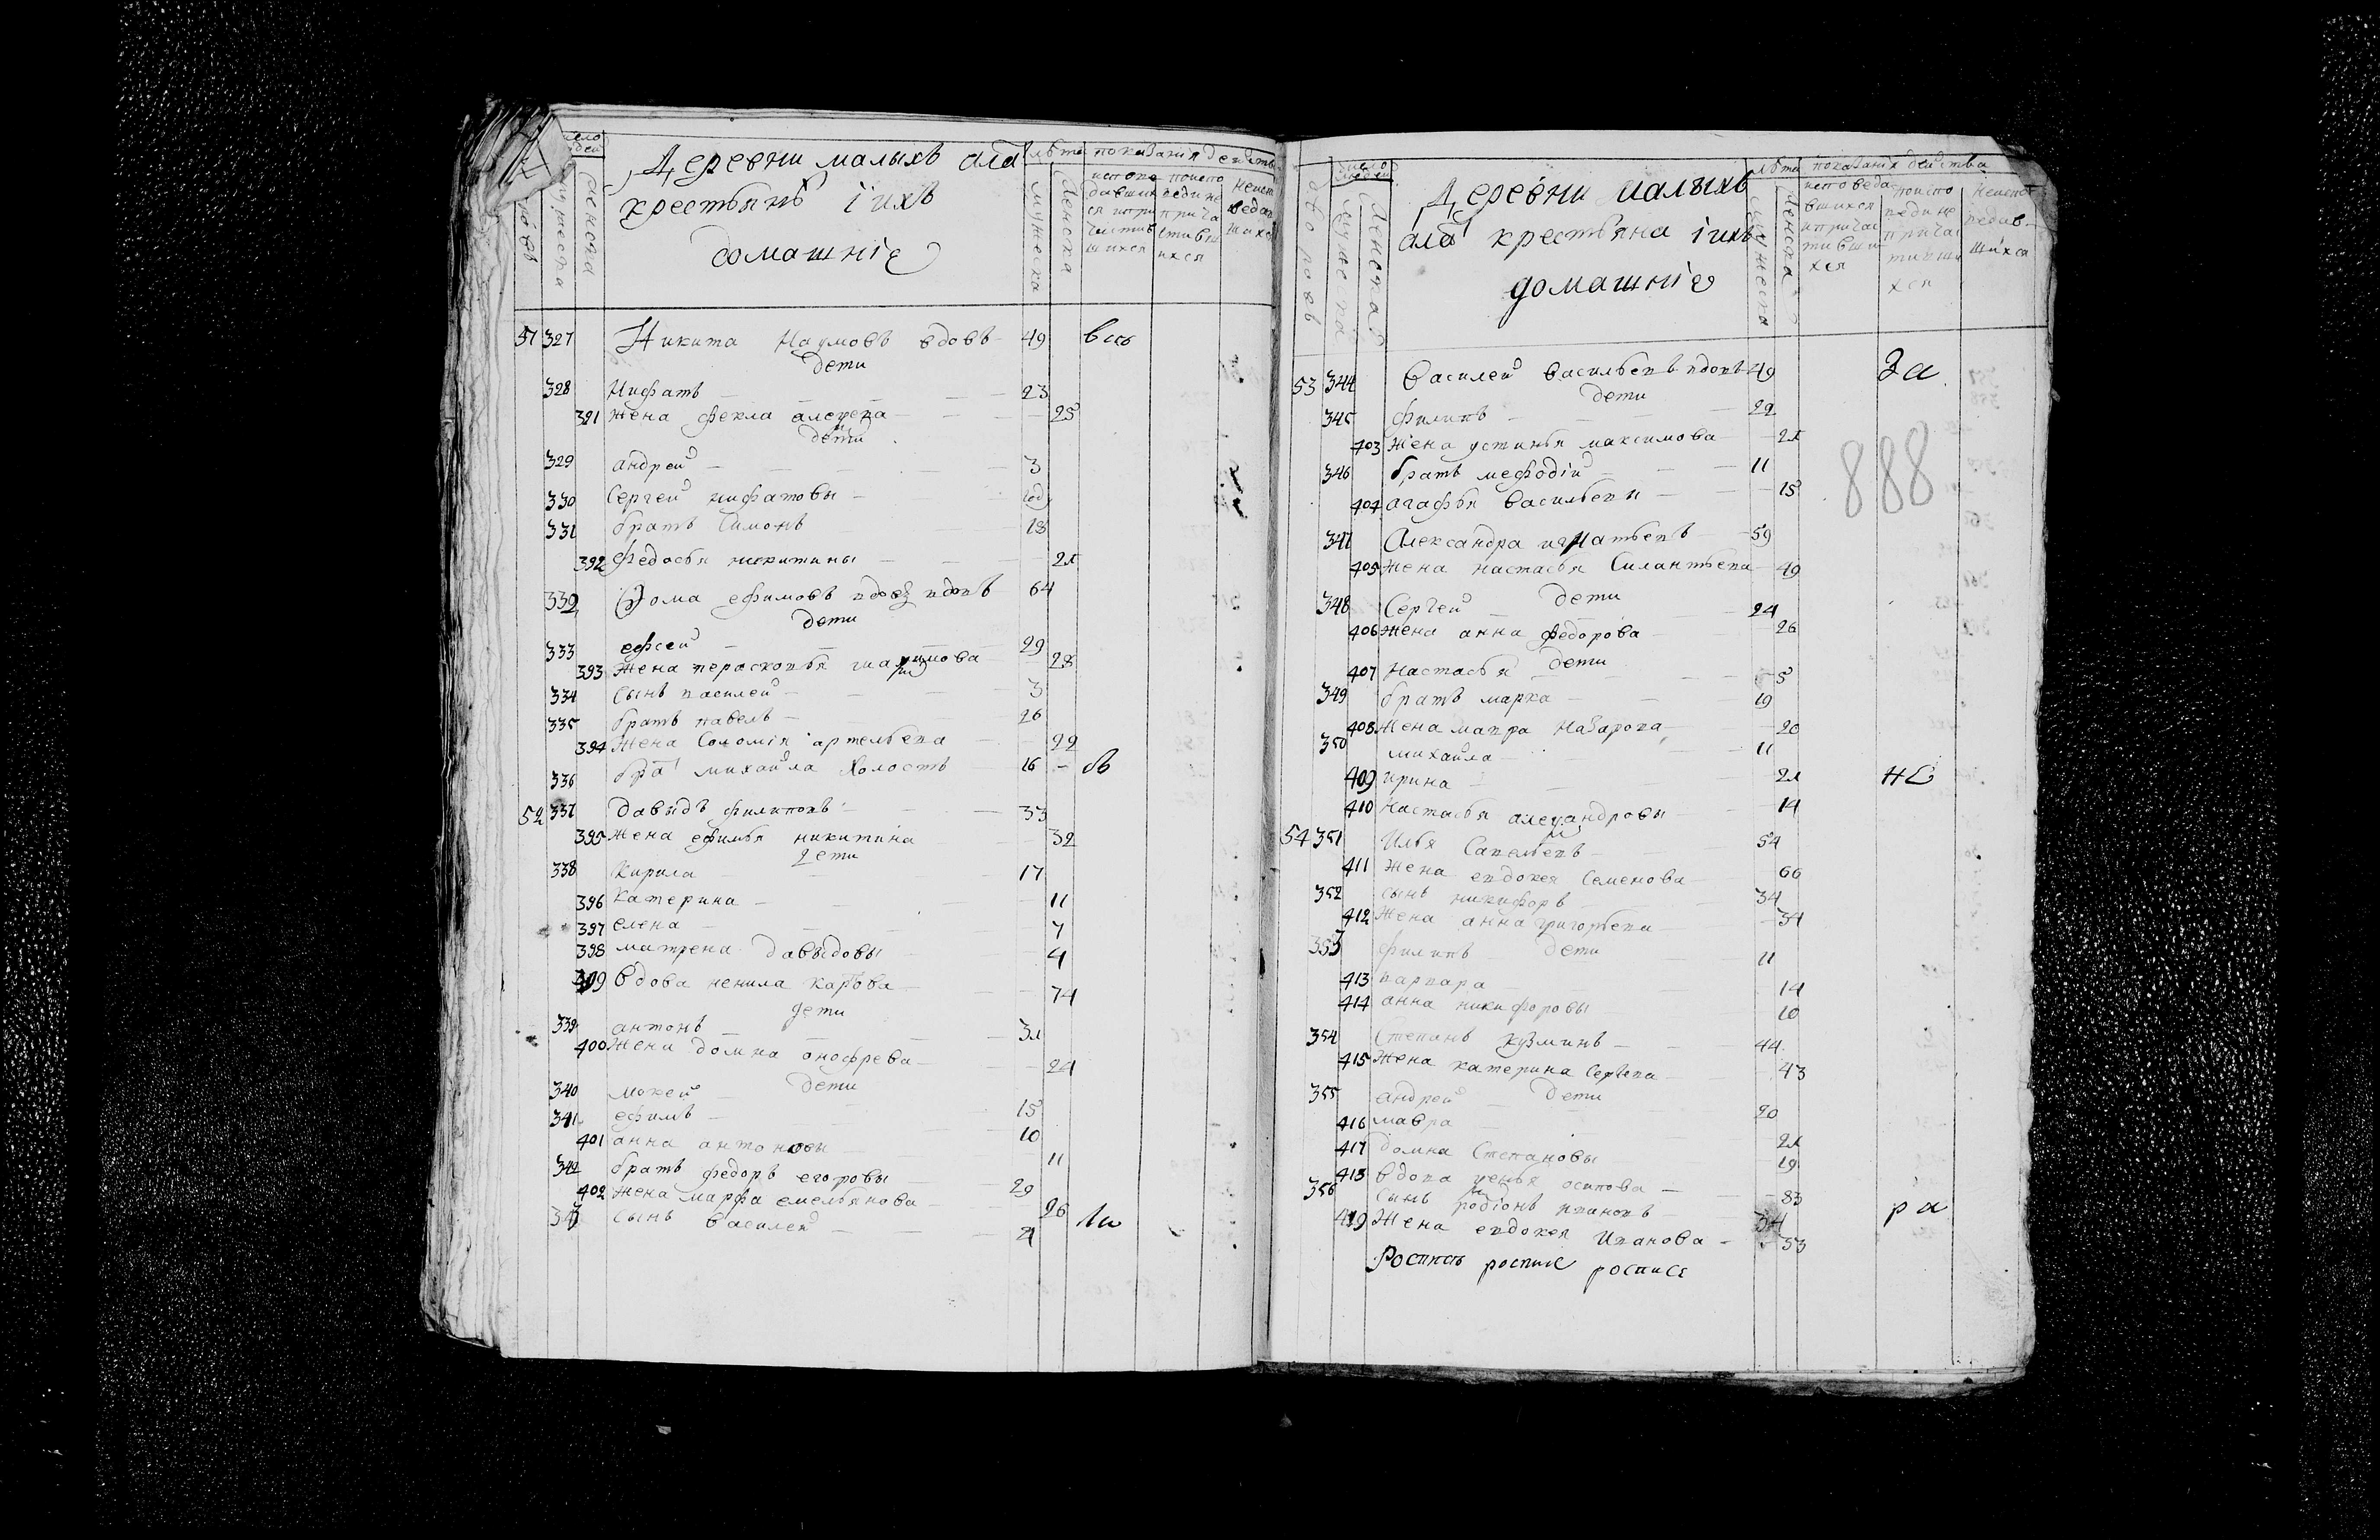 число людей
лѣта показания действа
дворовъ
мужеска
женска
Деревни малыхъ
крестьянъ і ихъ
домашніе
мужеска
женска
51 327 Никита Наумовъ вдовъ 49 вси
дети
328 Нифатъ 23
391 жена Фекла 25
дети
329 андрей 3
330 Сергей нифатовы год
331 братъ Симонъ 18
392 Федосья никитины 21
332 Фома ефимовъ вдовъ 64
дети
333 евсей 29
393 жена пероскопья 28
334 сынъ василей 3
335 братъ павелъ 26
394 жена Соломія артемьева 22
336 бра михайла холостъ 16
52 337 давыдъ филиповъ 33
395 жена ефимья никитина 32
дети
338 кирила 17
396 катерина 11
397 елена 7
398 матрена давыдовы 4
399 вдова ненила карпова 74
дети
339 антонъ 31
400 жена домна онофрева 24
дети
340 мокей 15
341 ефимъ 10
401 анна антоновы 11
342 братъ федоръ егоровы 29
402 жена марфа емельянова 26
343 сынъ василей 4
число людей
лѣта показания действа
дворовъ
мужеска
женска
Деревни малыхъ
крестьяна і ихъ
домашніе
мужеска
женска
53 344 Василей васильевъ вдовъ 49 За
дети
345 филипъ 22
403 жена устинья максимова 21
346 братъ мефодій 11
404 агафья васильевы 15
888
347 Александра игнатьевъ 59
405 жена настасья Силантьева 49
дети
348 Сергей 24
406 жена анна федорова 26
дети
407 настасья 5
349 братъ марка 19
408 жена мавра назарова 20
350 михайла 11
409 ирина 21 не
410 настасья александровы 14
54 351 Илья Савельевъ 54
411 жена евдокея Семенова 60
352 сынъ никифоръ 34
412 жена анна григорьева 34
дети
353 филипъ 11
413 варвара 14
414 анна никифоровы 10
354 Степанъ кузминъ 44
415 жена катерина Сергева 43
дети
355 андрей 20
416 мавра 21
417 домна Степановы 19
418 вдова осипова 83
356 сынъ родіонъ ивановъ 54 ра
419 жена евдокея Иванова 53
Роспись роспис росписе